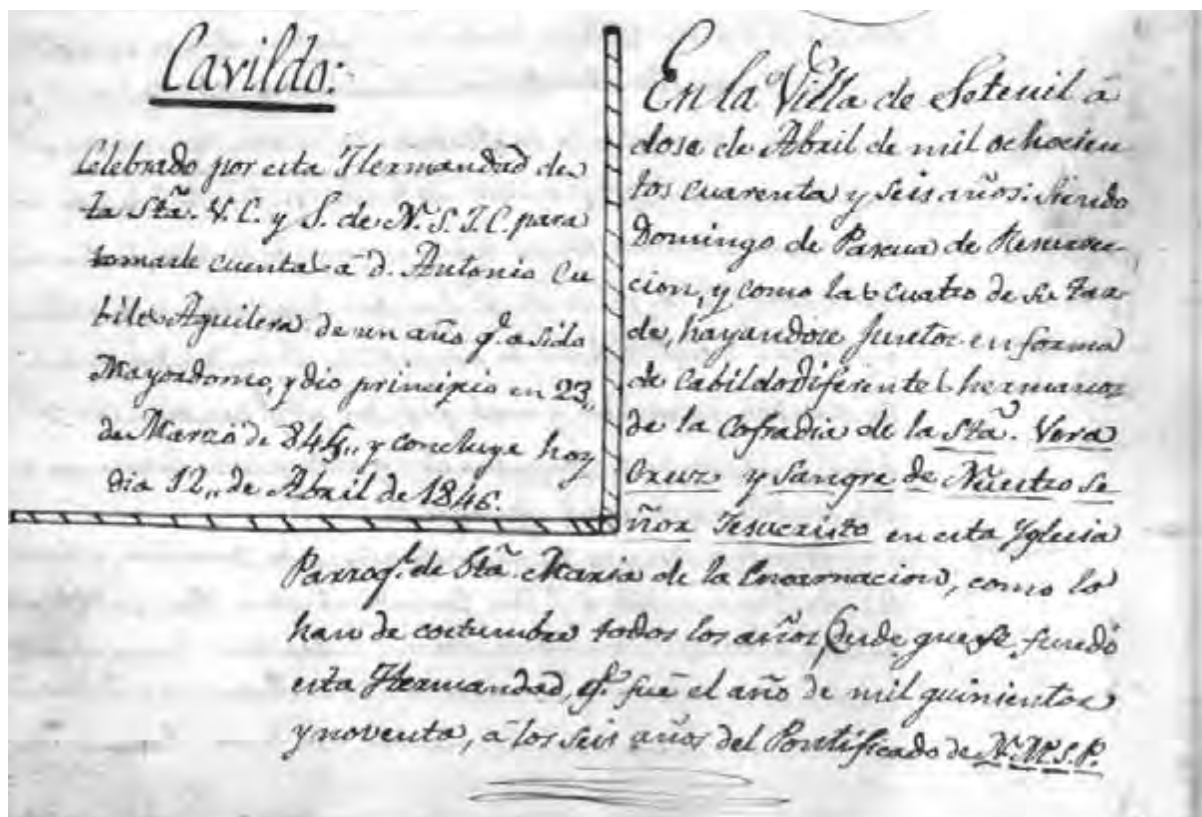 Cavildo:
Celebrado por esta Hermandad de
la Sta. V. C. y S. de N. S. J. C. para
tomarle cuentas â D. Antonio Cu
biles Aguilera de un año q.e a sido
Mayordomo, y dio principio en 23,,
de Marzo de 845,, y concluye hoy
dia 12,, de Abril de 1846.
En la Villa de Setenil â
dose de Abril de mil ochocien
tos cuarenta y seis años: Siendo
Domingo de Pascua de Resurrec-
cion, y como las cuatro de su tar
de, hayandose juntos en forma
de Cabildo diferentes hermanos
de la Cofradia de la Sta. Vera
Cruz y Sangre de Nuestro Se
ñor Jesucristo en esta Yglesia
Parroq.l de Sta. Maria de la Encarnacion, como lo
han de costumbre todos los años, desde que se fundó
esta Hermandad, q.e fué el año de mil quinientos
y noventa, â los seis años del Pontificado de N. M. S. P.